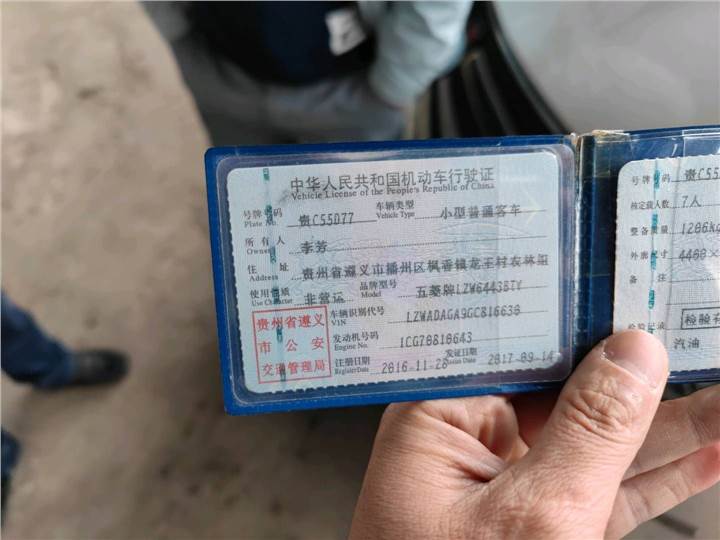 中华人民共和国机动车行驶证
Vehicle License of the People's Republic of China
号牌号码 贵C55D77 车辆类型 小型普通客车
Plate No. Vehicle Type
所有人 李芳
Owner
住址 贵州省遵义市播州区枫香镇龙王村农林组
Address
使用性质 非营运 品牌型号 五菱牌LZW6443BTY
Use Character Model
贵州省遵义
市公安
交通管理局
车辆识别代号 LZWADAGA9GC816630
VIN
发动机号码 1CG70810643
Engine No.
注册日期 2016-11-28 发证日期 2017-09-14
Register Date Issue Date
号牌号码 贵C55
核定载人数 7人
整备质量 1206kg
外廓尺寸 4400×
备注
检验记录
汽油